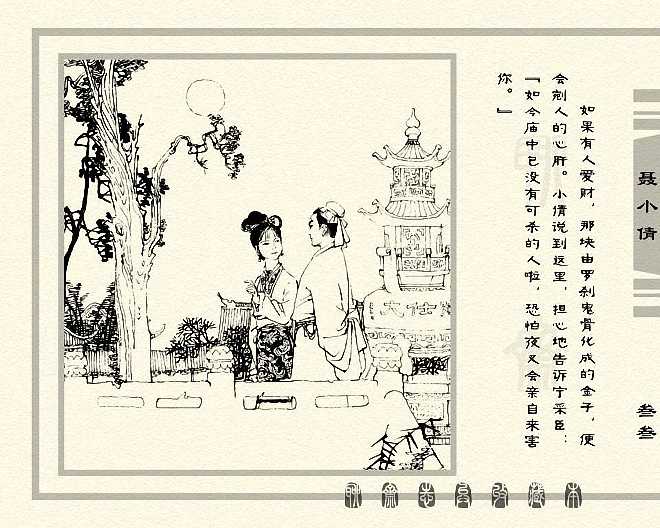 如果有人爱财，那块由罗刹鬼骨化成的金子，便
会剜人的心肝。小倩说到这里，担心地告诉宁采臣：
『如今庙中已没有可杀的人啦，恐怕夜叉会亲自来害
你。』
聂小倩
叁叁